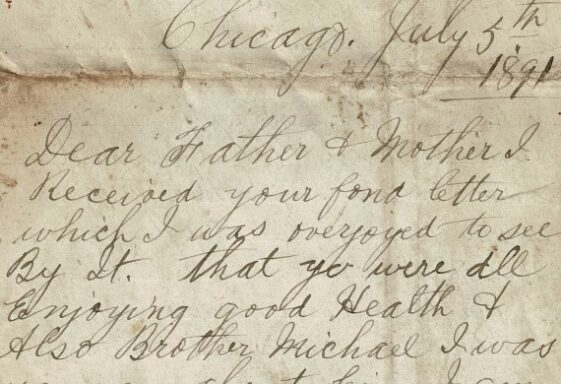 Chicago. July 5th
1891
Dear Father & Mother I
Received your fond letter
which I was overjoyed to see
By It. that yo were all
Enjoying good Health &
Also Brother Michael I was